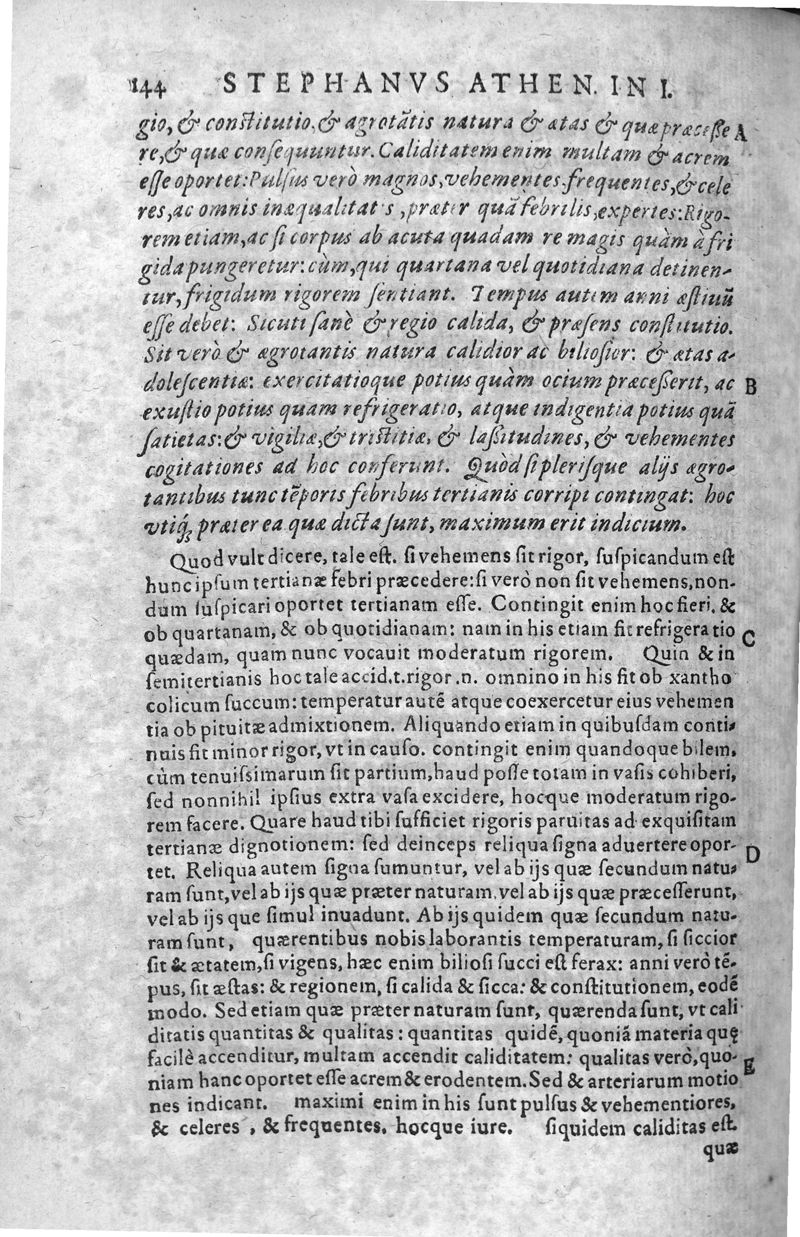 144 STEPHANVS ATHEN. IN I.
gio, & constitutio, & agrotātis natura & ætas & quæ præcesse A
re, & quæ consequuntur. Caliditatem enim multam & acrem
esse oportet: Pulsus verò magnos, vehementes, frequentes, & cele
res, ac omnis inæqualitat s, præter quā febrilis, expertes: Rigo-
rem etiam, ac si corpus ab acuta quadam re magis quàm à fri
gida pungeretur: cùm, qui quartana vel quotidiana detinen-
tur, frigidum rigorem sentiant. Tempus autem anni æstiuū
esse debet: Sicuti sanè & regio calida, & præsens constitutio.
Sit verò & ægrotantis natura calidior ac biliosior: & ætas a-
dolescentiæ: exercitatioque potius quàm ocium præcesserit, ac B
exustio potius quam refrigeratio, atque indigentia potius quā
satietas: & vigiliæ, & tristitiæ, & lassitudines, & vehementes
cogitationes ad hoc conferunt. Quòd si plerisque alijs ægro-
tantibus tunc tēporis febribus tertianis corripi contingat: hoc
vtiq́; præter ea quæ dicta sunt, maximum erit indicium.
Quod vult dicere, tale est. si vehemens sit rigor, suspicandum est
hunc ipsum tertianæ febri præcedere: si verò non sit vehemens, non-
dum suspicari oportet tertianam esse. Contingit enim hoc fieri, &
ob quartanam, & ob quotidianam: nam in his etiam fit refrigeratio C
quædam, quam nunc vocauit moderatum rigorem. Quin & in
semitertianis hoc tale accid.t. rigor .n. omnino in his fit ob xantho
colicum succum: temperatur autē atque coexercetur eius vehemen
tia ob pituitæ admixtionem. Aliquando etiam in quibusdam conti-
nuis fit minor rigor, vt in causo. contingit enim quandoque bilem,
cùm tenuissimarum sit partium, haud posse totam in vasis cohiberi,
sed nonnihil ipsius extra vasa excidere, hocque moderatum rigo-
rem facere. Quare haud tibi sufficiet rigoris paruitas ad exquisitam
tertianæ dignotionem: sed deinceps reliqua signa aduertere opor- D
tet. Reliqua autem signa sumuntur, vel ab ijs quæ secundum natu-
ram sunt, vel ab ijs quæ præter naturam, vel ab ijs quæ præcesserunt,
vel ab ijs que simul inuadunt. Ab ijs quidem quæ secundum natu-
ram sunt, quærentibus nobis laborantis temperaturam, si siccior
sit & ætatem, si vigens, hæc enim biliosi succi est ferax: anni verò tē-
pus, sit æstas: & regionem, si calida & sicca: & constitutionem, eodē
modo. Sed etiam quæ præter naturam sunt, quærenda sunt, vt cali
ditatis quantitas & qualitas: quantitas quidē, quoniā materia quę
facilè accenditur, multam accendit caliditatem: qualitas verò, quo- E
niam hanc oportet esse acrem & erodentem. Sed & arteriarum motio
nes indicant. maximi enim in his sunt pulsus & vehementiores,
& celeres, & frequentes. hocque iure. siquidem caliditas est.
quæ